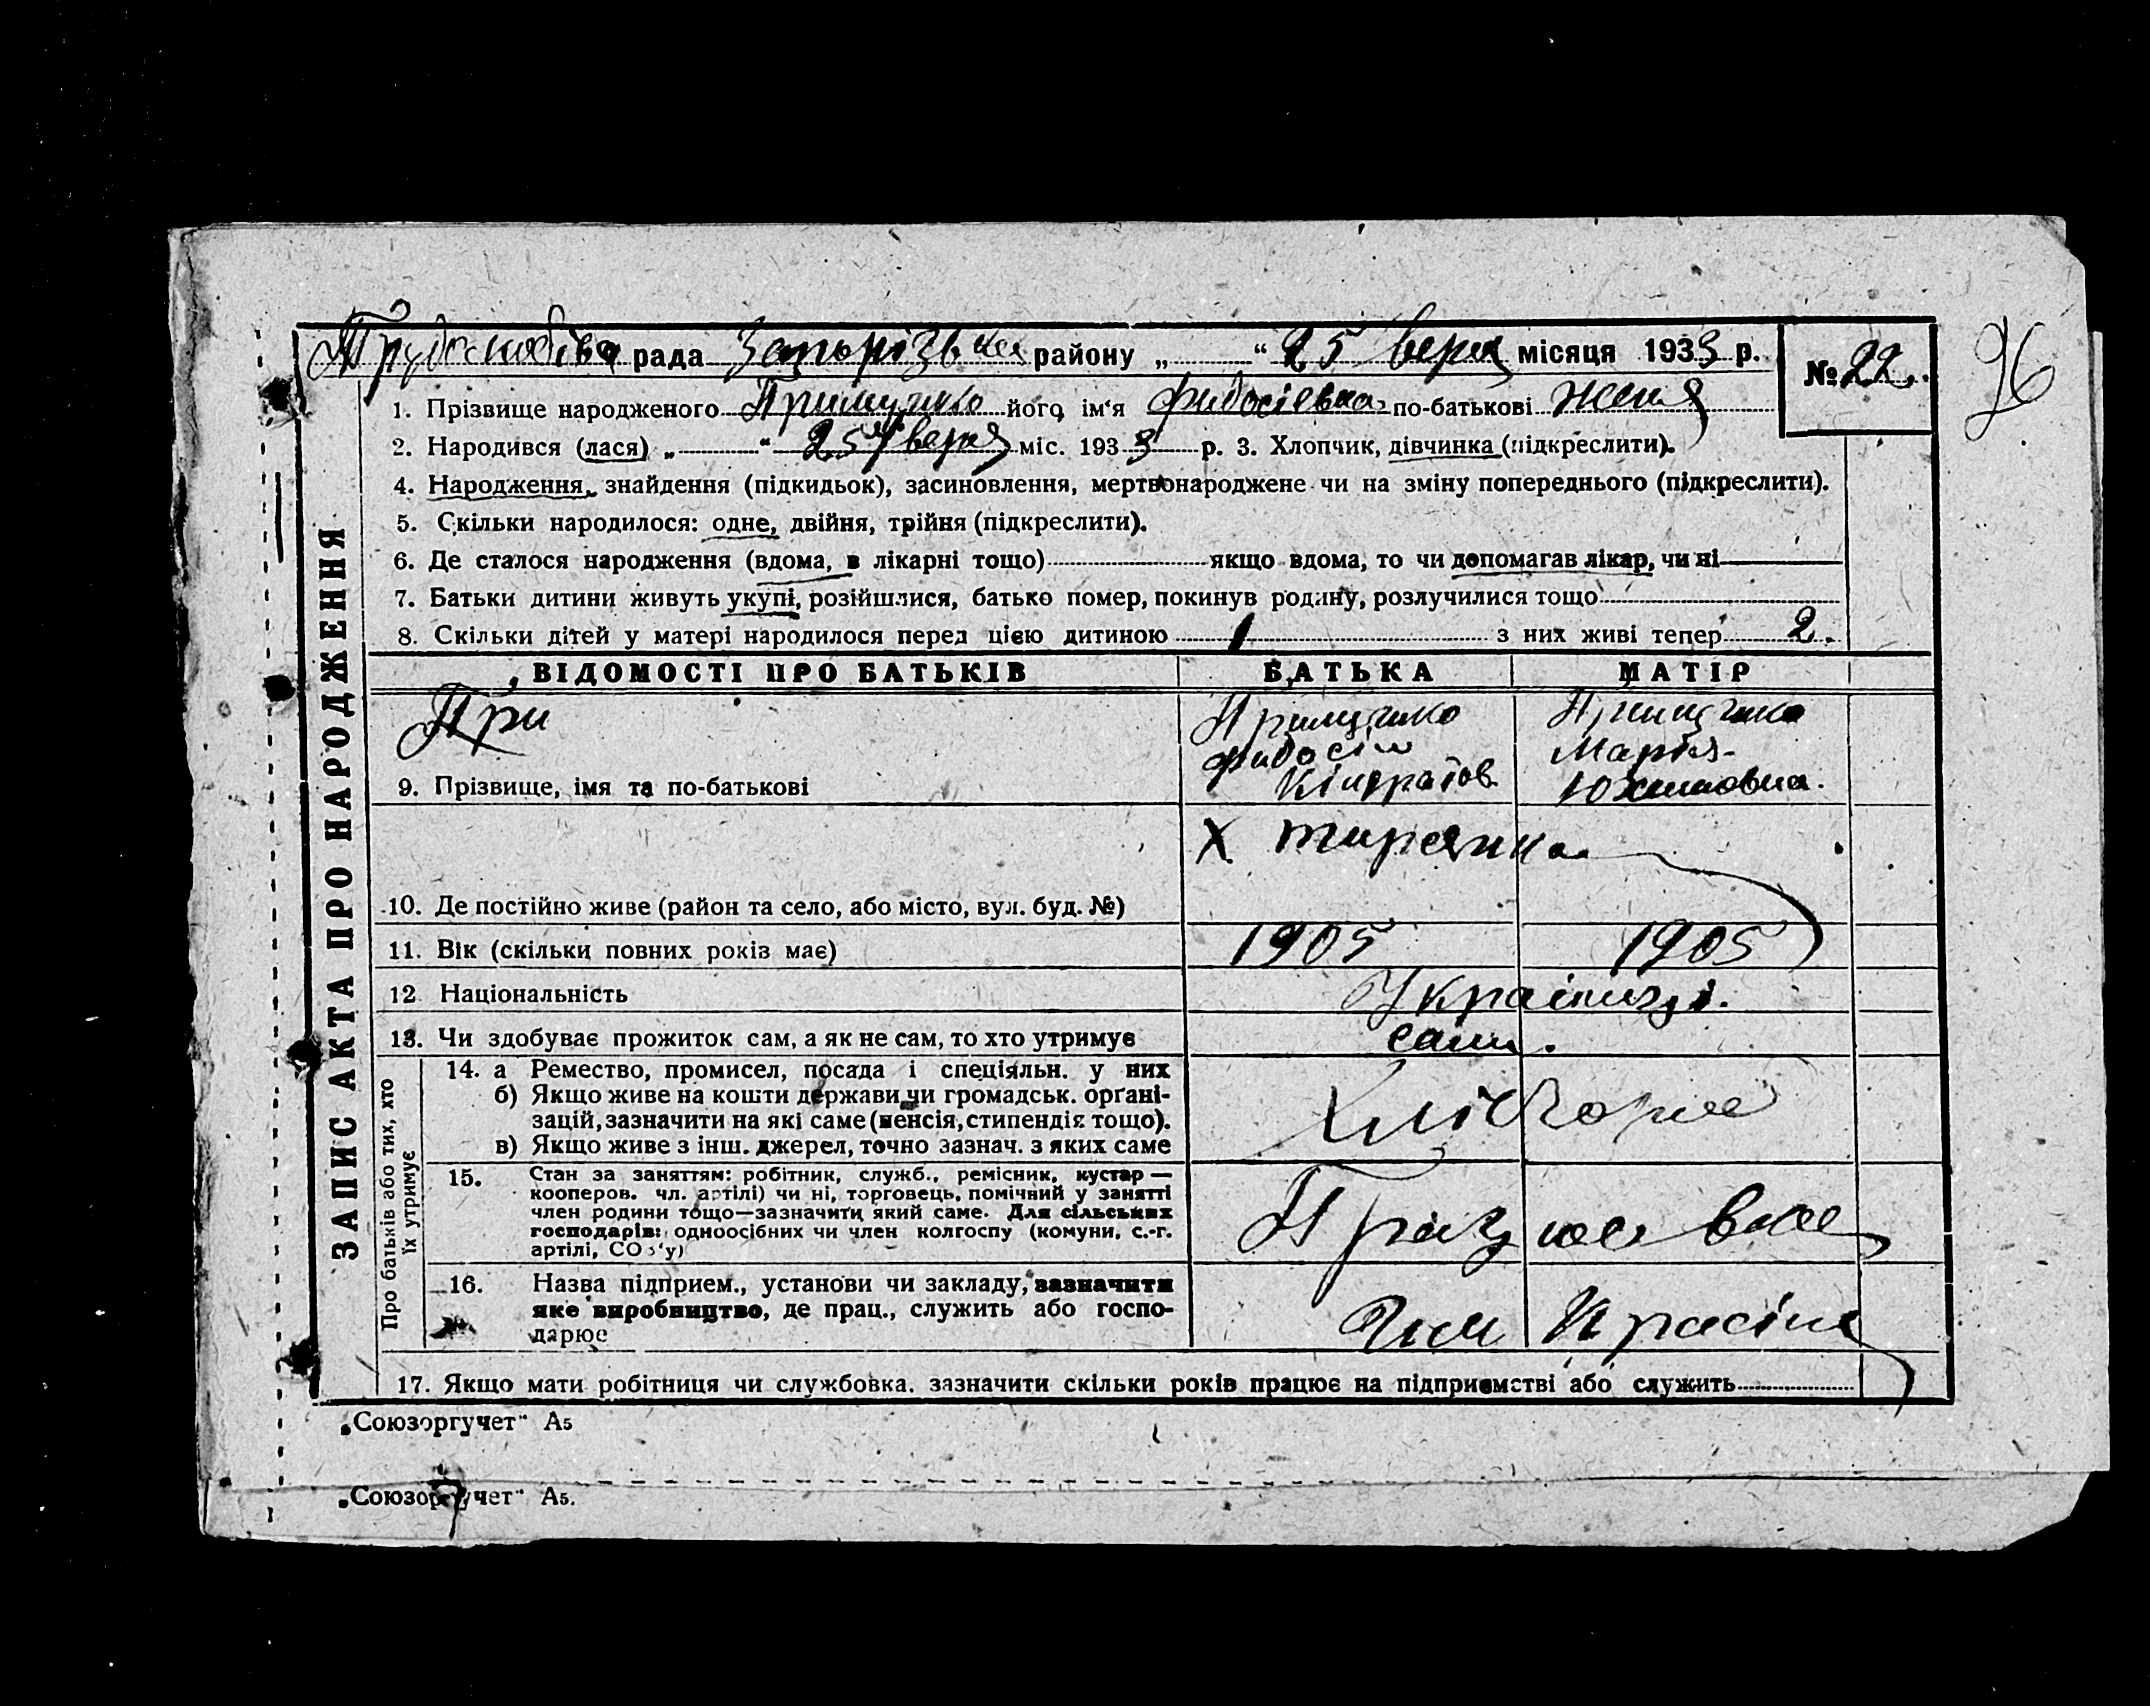 рада Запорізька району „ “ 25 верня місяця 1933 р.
№ 22.
96
1. Прізвище народженого його ім‘я Фидосіевна по-батькові Женя
2. Народився (лася) „ “ 25 верня міс. 1933 р. 3. Хлопчик, дівчинка (підкреслити).
4. Народження, знайдення (підкидьок), засиновлення, мертвонароджене чи на зміну попереднього (підкреслити).
5. Скільки народилося: одне, двійня, трійня (підкреслити).
6. Де сталося народження (вдома, в лікарні тощо) якщо вдома, то чи допомагав лікар, чи ні
7. Батьки дитини живуть укупі, розійшлися, батько помер, покинув родину, розлучилися тощо
8. Скільки дітей у матері народилося перед цією дитиною 1 з них живі тепер 2.
ЗАПИС АКТА ПРО НАРОДЖЕННЯ
ВІДОМОСТІ ПРО БАТЬКІВ БАТЬКА МАТІР
При
Фидосій Марія
9. Прізвище, імя та по-батькові Кіндратов Юхимовна.
Х
10. Де постійно живе (район та село, або місто, вул. буд. №)
11. Вік (скільки повних років має) 1905 1905
12 Національність Українці.
13. Чи здобуває прожиток сам, а як не сам, то хто утримує сами.
Про батьків або тих, хто
їх утримує
14. а Ремество, промисел, посада і спеціяльн. у них
б) Якщо живе на кошти держави чи громадськ. орґані-
зацій, зазначити на які саме (пенсія, стипендія тощо).
в) Якщо живе з інш. джерел, точно зазнач. з яких саме
Хлібороб
15. Стан за заняттям: робітник, служб., ремісник, кустар —
кооперов. чл. артілі) чи ні, торговець, помічний у занятті
член родини тощо—зазначити який саме. Для сільських
господарів: одноосібних чи член колгоспу (комуни, с.-г.
артілі, СОЗ‘у)
16. Назва підприєм., установи чи закладу, зазначити
яке виробництво, де прац., служить або госпо-
дарює
Красіна
17. Якщо мати робітниця чи службовка. зазначити скільки років працює на підприємстві або служить
„Союзоргучет“ А5
„Союзоргучет“ А5.